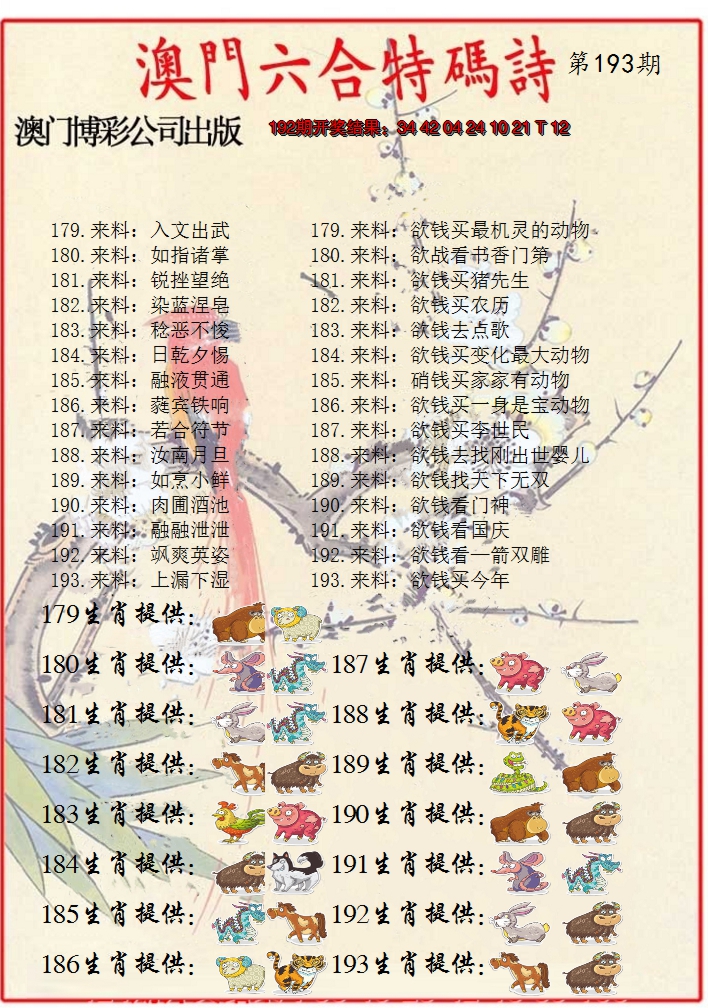 澳門六合特碼詩 第193期
澳门博彩公司出版 192期开奖结果：34 42 04 24 10 21 T 12
179.来料：入文出武 179.来料：欲钱买最机灵的动物
180.来料：如指诸掌 180.来料：欲战看书香门第
181.来料：锐挫望绝 181.来料：欲钱买猪先生
182.来料：染蓝涅皂 182.来料：欲钱买农历
183.来料：稔恶不悛 183.来料：欲钱去点歌
184.来料：日乾夕惕 184.来料：欲钱买变化最大动物
185.来料：融液贯通 185.来料：硝钱买家家有动物
186.来料：蕤宾铁响 186.来料：欲钱买一身是宝动物
187.来料：若合符节 187.来料：欲钱买李世民
188.来料：汝南月旦 188.来料：欲钱去找刚出世婴儿
189.来料：如烹小鲜 189.来料：欲钱找天下无双
190.来料：肉圃酒池 190.来料：欲钱看门神
191.来料：融融泄泄 191.来料：欲钱看国庆
192.来料：飒爽英姿 192.来料：欲钱看一箭双雕
193.来料：上漏下湿 193.来料：欲钱买今年
179生肖提供：
180生肖提供： 187生肖提供：
181生肖提供： 188生肖提供：
182生肖提供： 189生肖提供：
183生肖提供： 190生肖提供：
184生肖提供： 191生肖提供：
185生肖提供： 192生肖提供：
186生肖提供： 193生肖提供：